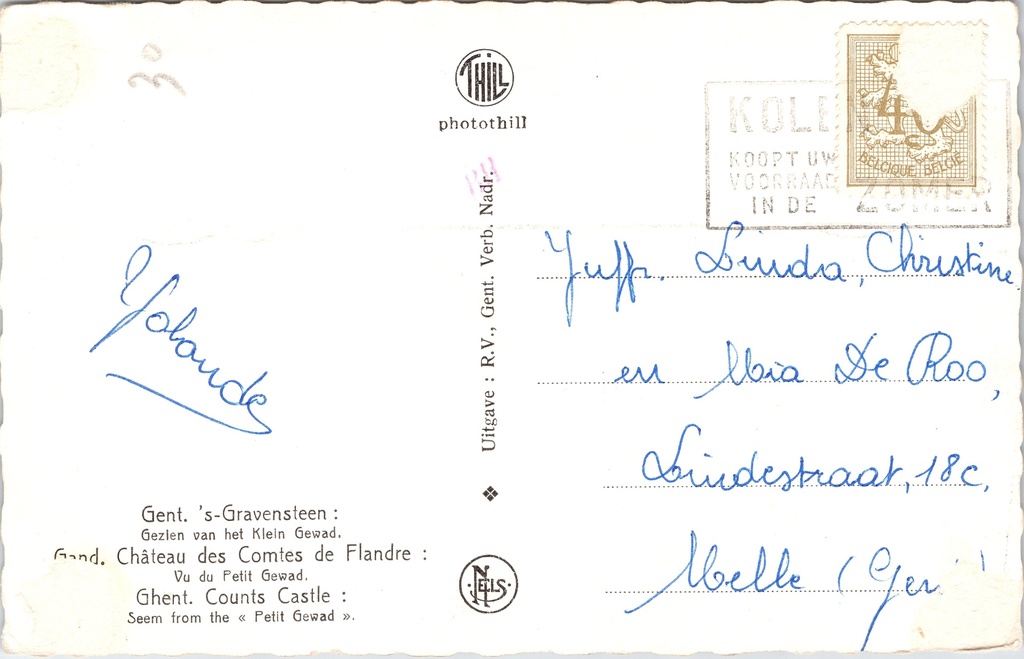 30
THILL
photothill
PH
Uitgave : R.V., Gent. Verb. Nadr.
NELS
KOLEN
KOOPT UW
VOORRAAD
IN DE ZOMER
40
BELGIQUE BELGIE
Juffr. Linda, Christine
en Mia De Roo,
Lindestraat, 18c,
Melle (Gen
Yolande
Gent. 's-Gravensteen :
Gezien van het Klein Gewad.
Gand. Château des Comtes de Flandre :
Vu du Petit Gewad.
Ghent. Counts Castle :
Seem from the « Petit Gewad ».